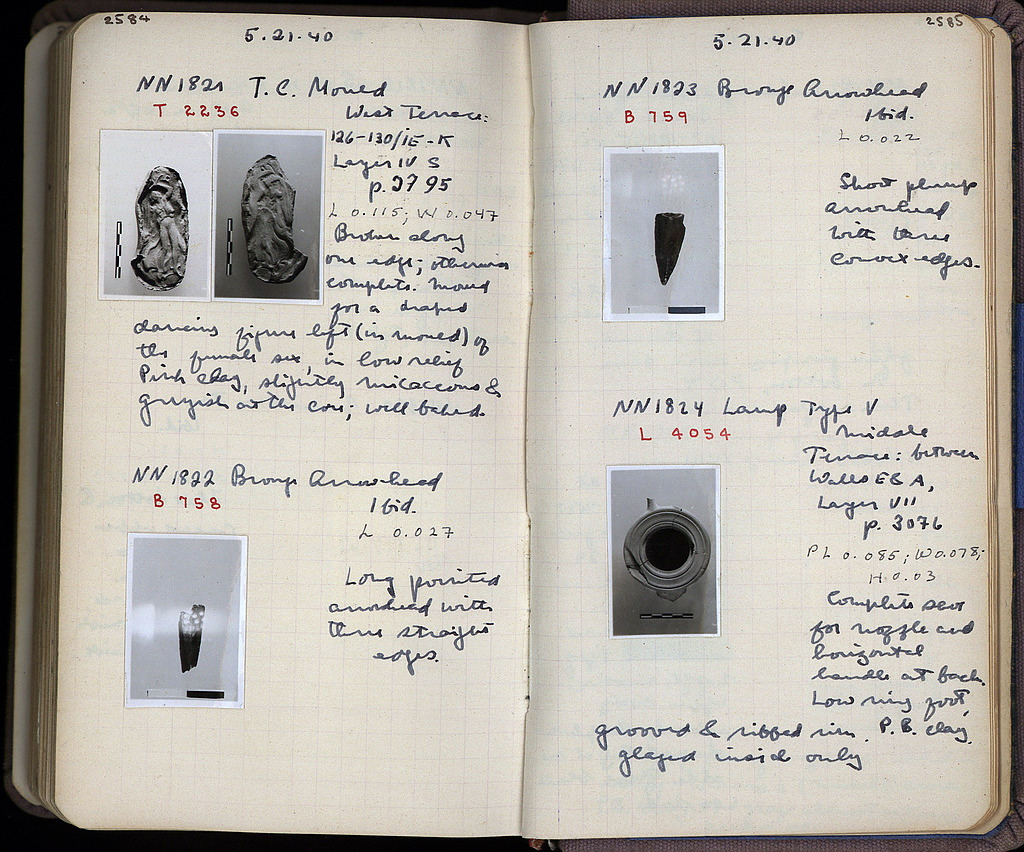 2584
5.21.40
NN1821 T.C. Mould
T 2236
West Terrace:
126-130/iE-K
Layer IV S
p. 2795
L 0.115; W 0.047
Broken along
one edge; otherwise
complete. Mould
for a draped
dancing figure left (in mould) of
the female sex, in low relief
Pink clay, slightly micaceous &
greyish at the core; well baked.
NN1822 Bronze Arrowhead
B 758
Ibid.
L 0.027
Long pointed
arrowhead with
three straight
edges.
2585
5.21.40
NN1823 Bronze Arrowhead
B 759
Ibid.
L 0.022
Short plump
arrowhead
with three
convex edges.
NN1824 Lamp Type V
L 4054
Middle
Terrace: between
Walls E & A,
Layer VII
p. 3076
PL 0.085; W 0.078;
H 0.03
Complete save
for nozzle and
horizontal
handle at back.
Low ring foot,
grooved & ribbed rim. P.B. clay,
glazed inside only